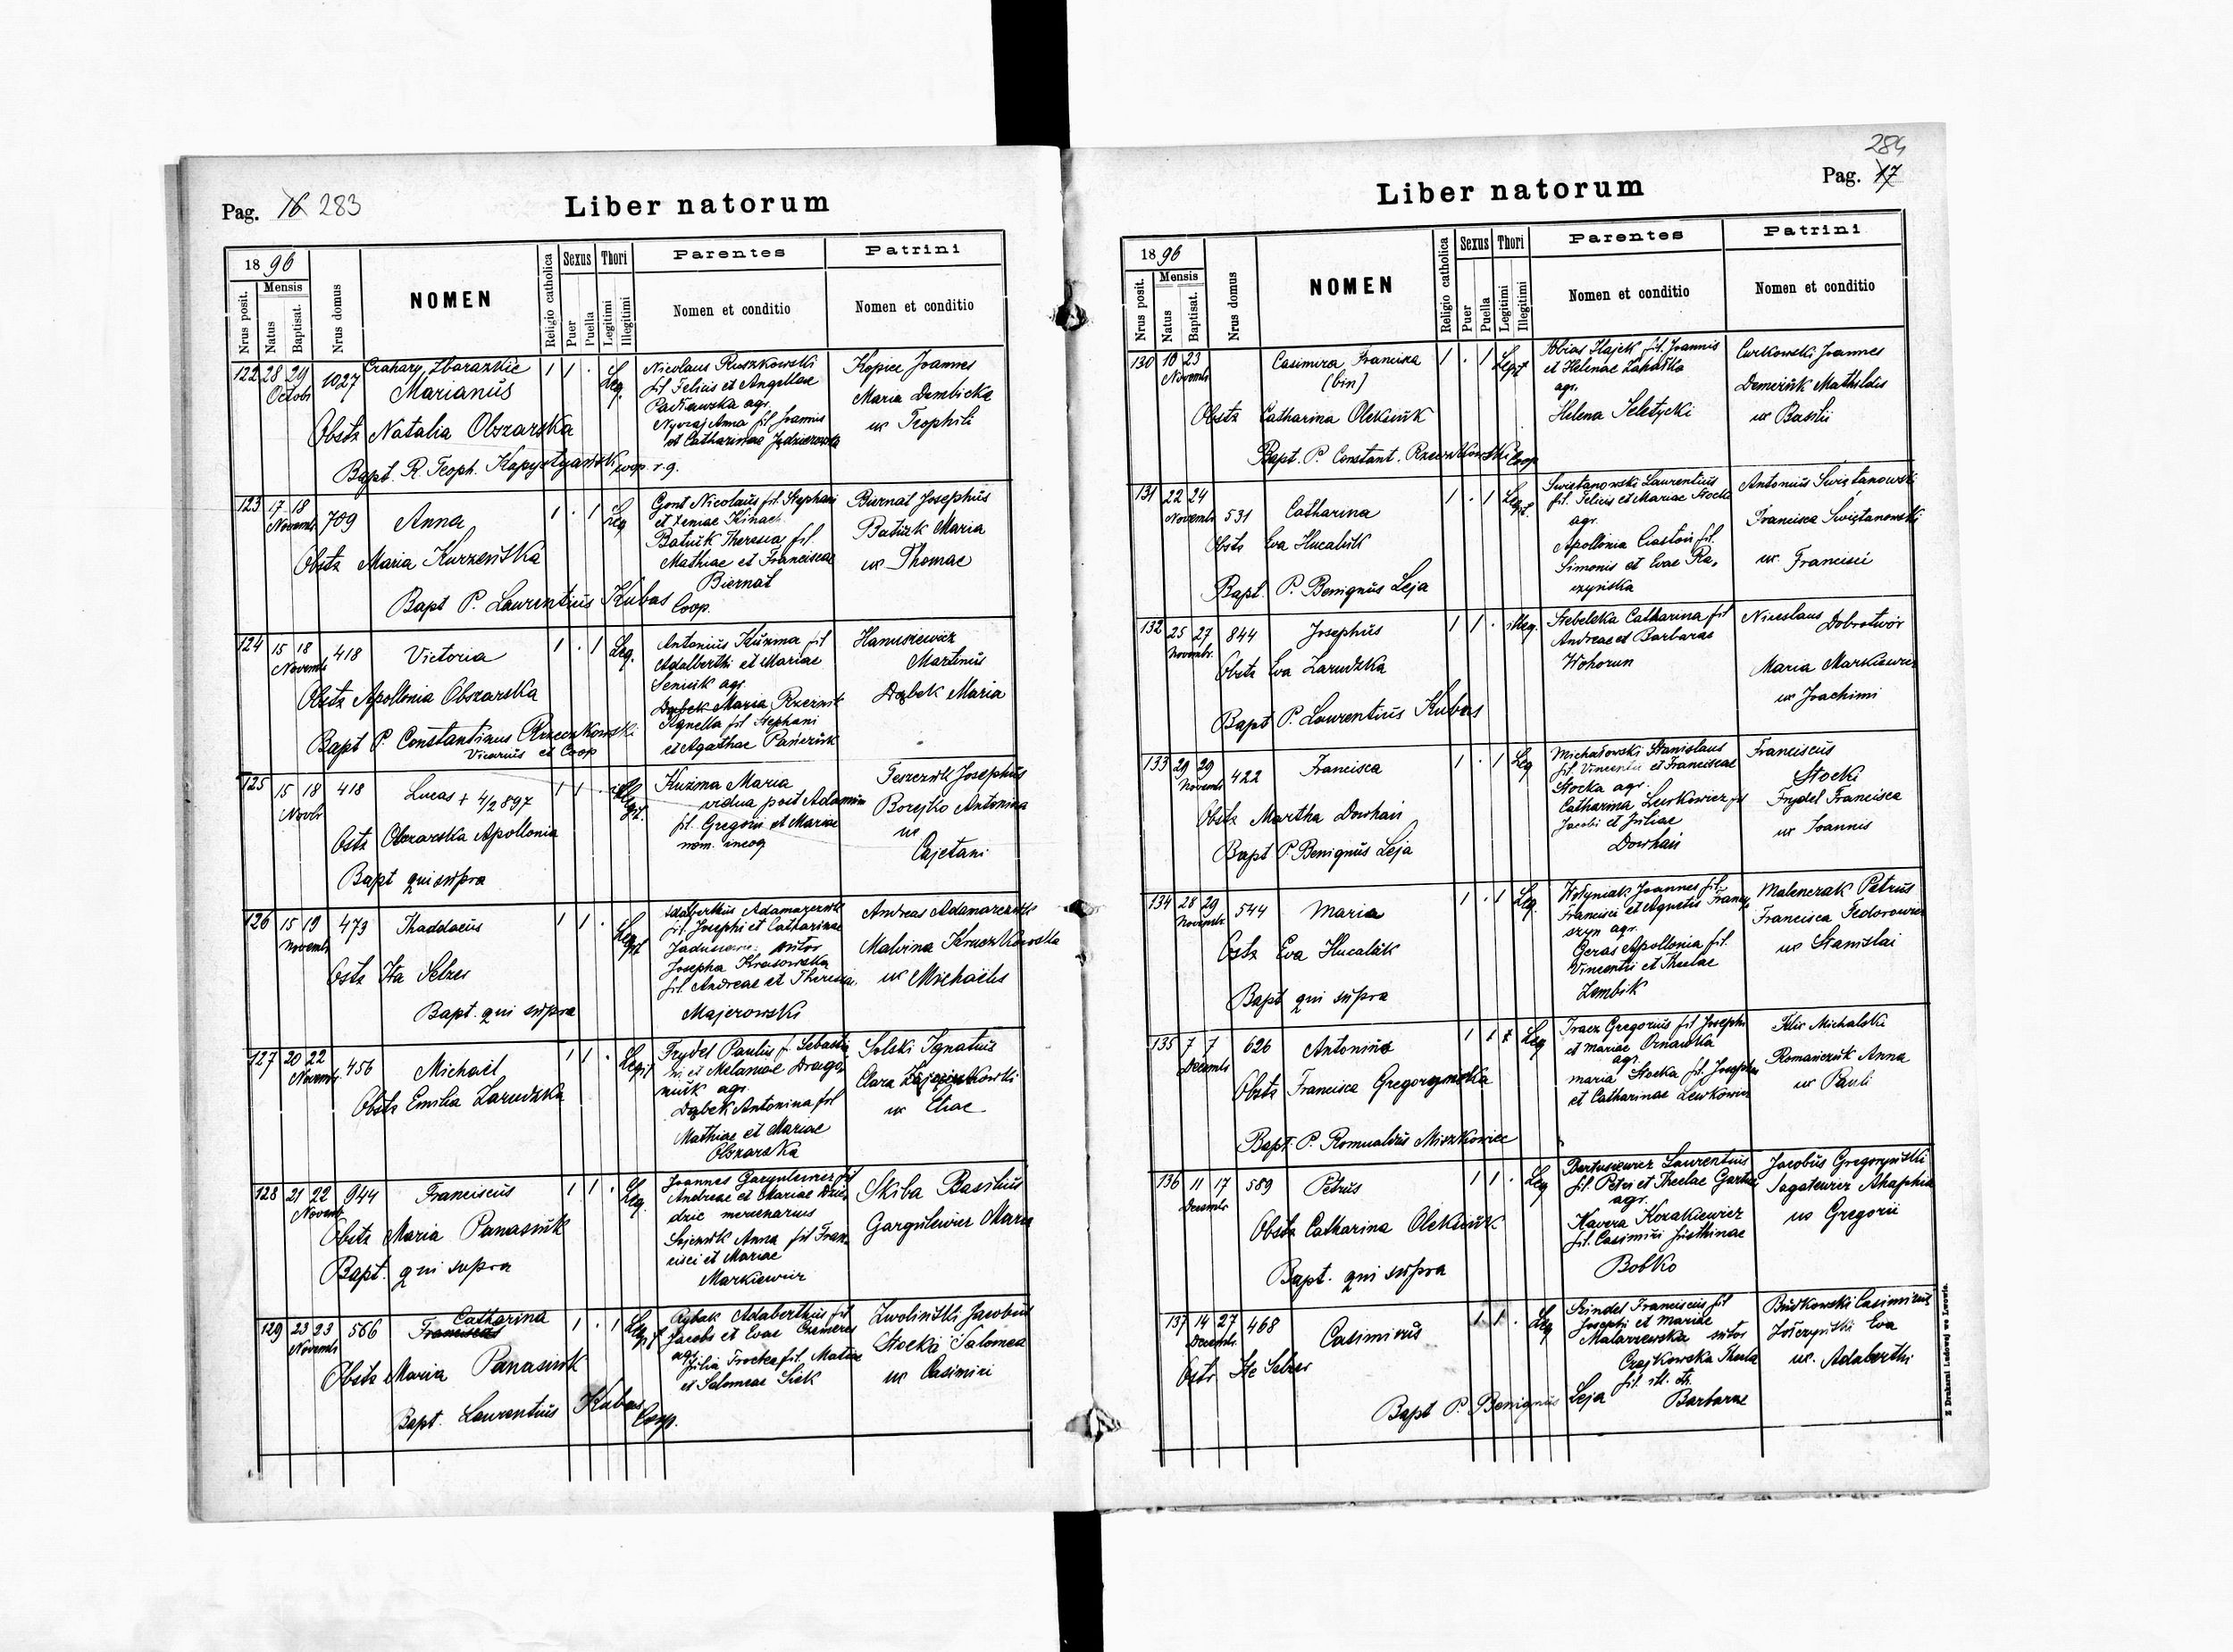 Pag. 16 283
Liber natorum
1896
Mensis
Nrus posit.
Natus
Baptisat.
Nrus domus
NOMEN
Religio catholica
Sexus
Puer
Puella
Thori
Legitimi
Illegitimi
Parentes
Nomen et conditio
Patrini
Nomen et conditio
122 28 29 Octobr 1027
Czahary Zbarazkie
Marianus
1 1 . Leg.
Nicolaus Ruszkowski
fil Felicis et Angellae
agr.
Anna fil Joannis
et Catharinae
Kopiec Joannes
Maria Dembicka
ux Teophili
Obstz Natalia Obzarska
Bapt. R. Teoph. coop. r. g.
123 17 18 Novemb 709
Anna
1 . 1 Leg
Gont Nicolaus fil. Stephani
et Xeniae Kinach
Batiuk Theresia fil.
Mathiae et Franciscae
Biernat
Biernat Josephus
Batiuk Maria
ux Thomae
Obstz Maria Kurzeńska
Bapt P. Laurentius Kubas Coop.
124 15 18 Novemb 418
Victoria
1 . 1 Leg.
Antonius Kuzma fil
Adalberthi et Mariae
Seniuk agr.
Agnella fil Stephani
et Agathae
Hanusiewicz
Martinus
Dąbek Maria
Obstz Apollonia Obzarska
Bapt P. Constantinus Rzeczkowski
Vicarius et Coop
125 15 18 Novbr 418
Lucas + 4/2 897
1 1 .
Kuzma Maria
vidua post Adamum
fil. Gregorii et Mariae
nom. incog
Josephus
Borejko Antonina
ux
Cajetani
Ostz Obzarska Apollonia
Bapt qui supra
126 15 19 Novemb 473
Thaddaeus
1 1 . Legit
Adalberthus Adamarczuk
fil. Josephi et Catharinae
sutor
Josepha Krasowska
fil. Andreae et Theresiae
Majerowski
Andreas Adamarczuk
Malvina Kruczkowska
ux Michaelis
Ostz Ita Selzer
Bapt. qui supra
127 20 22 Novemb. 456
Michael
1 1 . Legit
Frydel Paulus f. Sebastia
ni et Melaniae Drago
niuk agr.
Dąbek Antonina fil
Mathiae et Mariae
Obzarska
Solski Ignatius
Clara
ux Eliae
Obstz Emilia Zarudzka
128 21 22 Novemb 944
Franciscus
1 1 . Leg.
Joannes Gargulewicz fil
Andreae et Mariae Dzie
dzic mercenarius
Anna fil Fran
cisci et Mariae
Markiewicz
Skiba Basilius
Gargulewicz Maria
Obstz Maria Panasiuk
Bapt. qui supra
129 23 23 Novemb 566
Catharina
Franciscus
1 . 1 Legit
Rybak Adalberthus fil
Jacobi et Evae
agr.
Julia fil. Matiae
et Salomeae
Zwoliński Jacobus
Stocka Salomea
ux Casimiri
Obstz Maria Panasiuk
Bapt. Laurentius Kubas Coop.
284
Pag. 17
Liber natorum
1896
Mensis
Nrus posit.
Natus
Baptisat.
Nrus domus
NOMEN
Religio catholica
Sexus
Puer
Puella
Thori
Legitimi
Illegitimi
Parentes
Nomen et conditio
Patrini
Nomen et conditio
130 10 23 Novemb
Casimira Francisca
(bin)
1 . 1 Legit
Tobias Hajek fil. Joannis
et Helenae
agr.
Helena Seletycki
Curkowski Joannes
Demeriuk Mathildis
ux Basilii
Obstz Catharina Oleksiuk
Bapt. P. Constant. Rzeczkowski Coop
131 22 24 Novemb 531
Catharina
1 . 1 Legit.
Swiętanowski Laurentius
fil. Felicis et Mariae Stocka
agr.
Apollonia Gastoń fil.
Simonis et Evae Ra,
czyńska
Antonius Swiętanowski
Francisca Swiętanowski
ux. Francisci
Obstz Eva Hucaluk
Bapt. P. Benignus Leja
132 25 27 Novembr. 844
Josephus
1 1 . illeg.
Stebelska Catharina fil
Andreae et Barbarae
Wohorun
Nicolaus Dobrotwór
Maria Markiewicz
ux Joachimi
Obstz Eva Zarudzka
Bapt P. Laurentius Kubas
133 29 29 Novemb 422
Francisca
1 . 1 Leg
Michałowski Stanislaus
fil. Vincentii et Franciscae
Stocka agr.
Catharina Lewkowicz fil
Jacobi et Juliae
Dowhań
Franciscus
Stocki
Frydel Francisca
ux Joannis
Obstz Martha Dowhań
Bapt P. Benignus Leja
134 28 29 Novemb 544
Maria
1 . 1 Leg.
Wołyniak Joannes fil.
Francisci et Agnetis
agr.
Geras Apollonia fil.
Vincentii et Theclae
Zembik
Malenczak Petrus
Francisca Fedorowicz
ux Stanislai
Ostz Eva Hucaluk
Bapt qui supra
135 7 7 Decemb 626
Antonina
1 1 Leg
Tracz Gregorius fil Josephi
et Mariae Ornawka
agr.
Maria Stocka fil. Josephi
et Catharinae Lewkowicz
Felix Michalski
Romańczuk Anna
ux Pauli
Obstz Francisca Gregorzyńska
Bapt. P. Romualdus Miszkowiec
136 11 17 Decemb 589
Petrus
1 1 . Leg
Bartusiewicz Laurentius
fil. Petri et Theclae
agr.
Xavera Kozakiewicz
fil. Casimiri Justhinae
Bobko
Jacobus Gregorzyński
Jagatewicz Ahaphia
ux Gregorii
Obstz Catharina Oleksiuk
Bapt. qui supra
137 14 27 Decemb. 468
Casimirus
1 1 . Leg
Franciscus fil
Josephi et Mariae
Malarzewska sutor
Czajkowska Thecla
Barbarae
Budkowski Casimirus
Eva
ux. Adalberthi
Ostr Ite Selzer
Bapt P. Benignus Leja
Z Drukarni Ludowej we Lwowie.